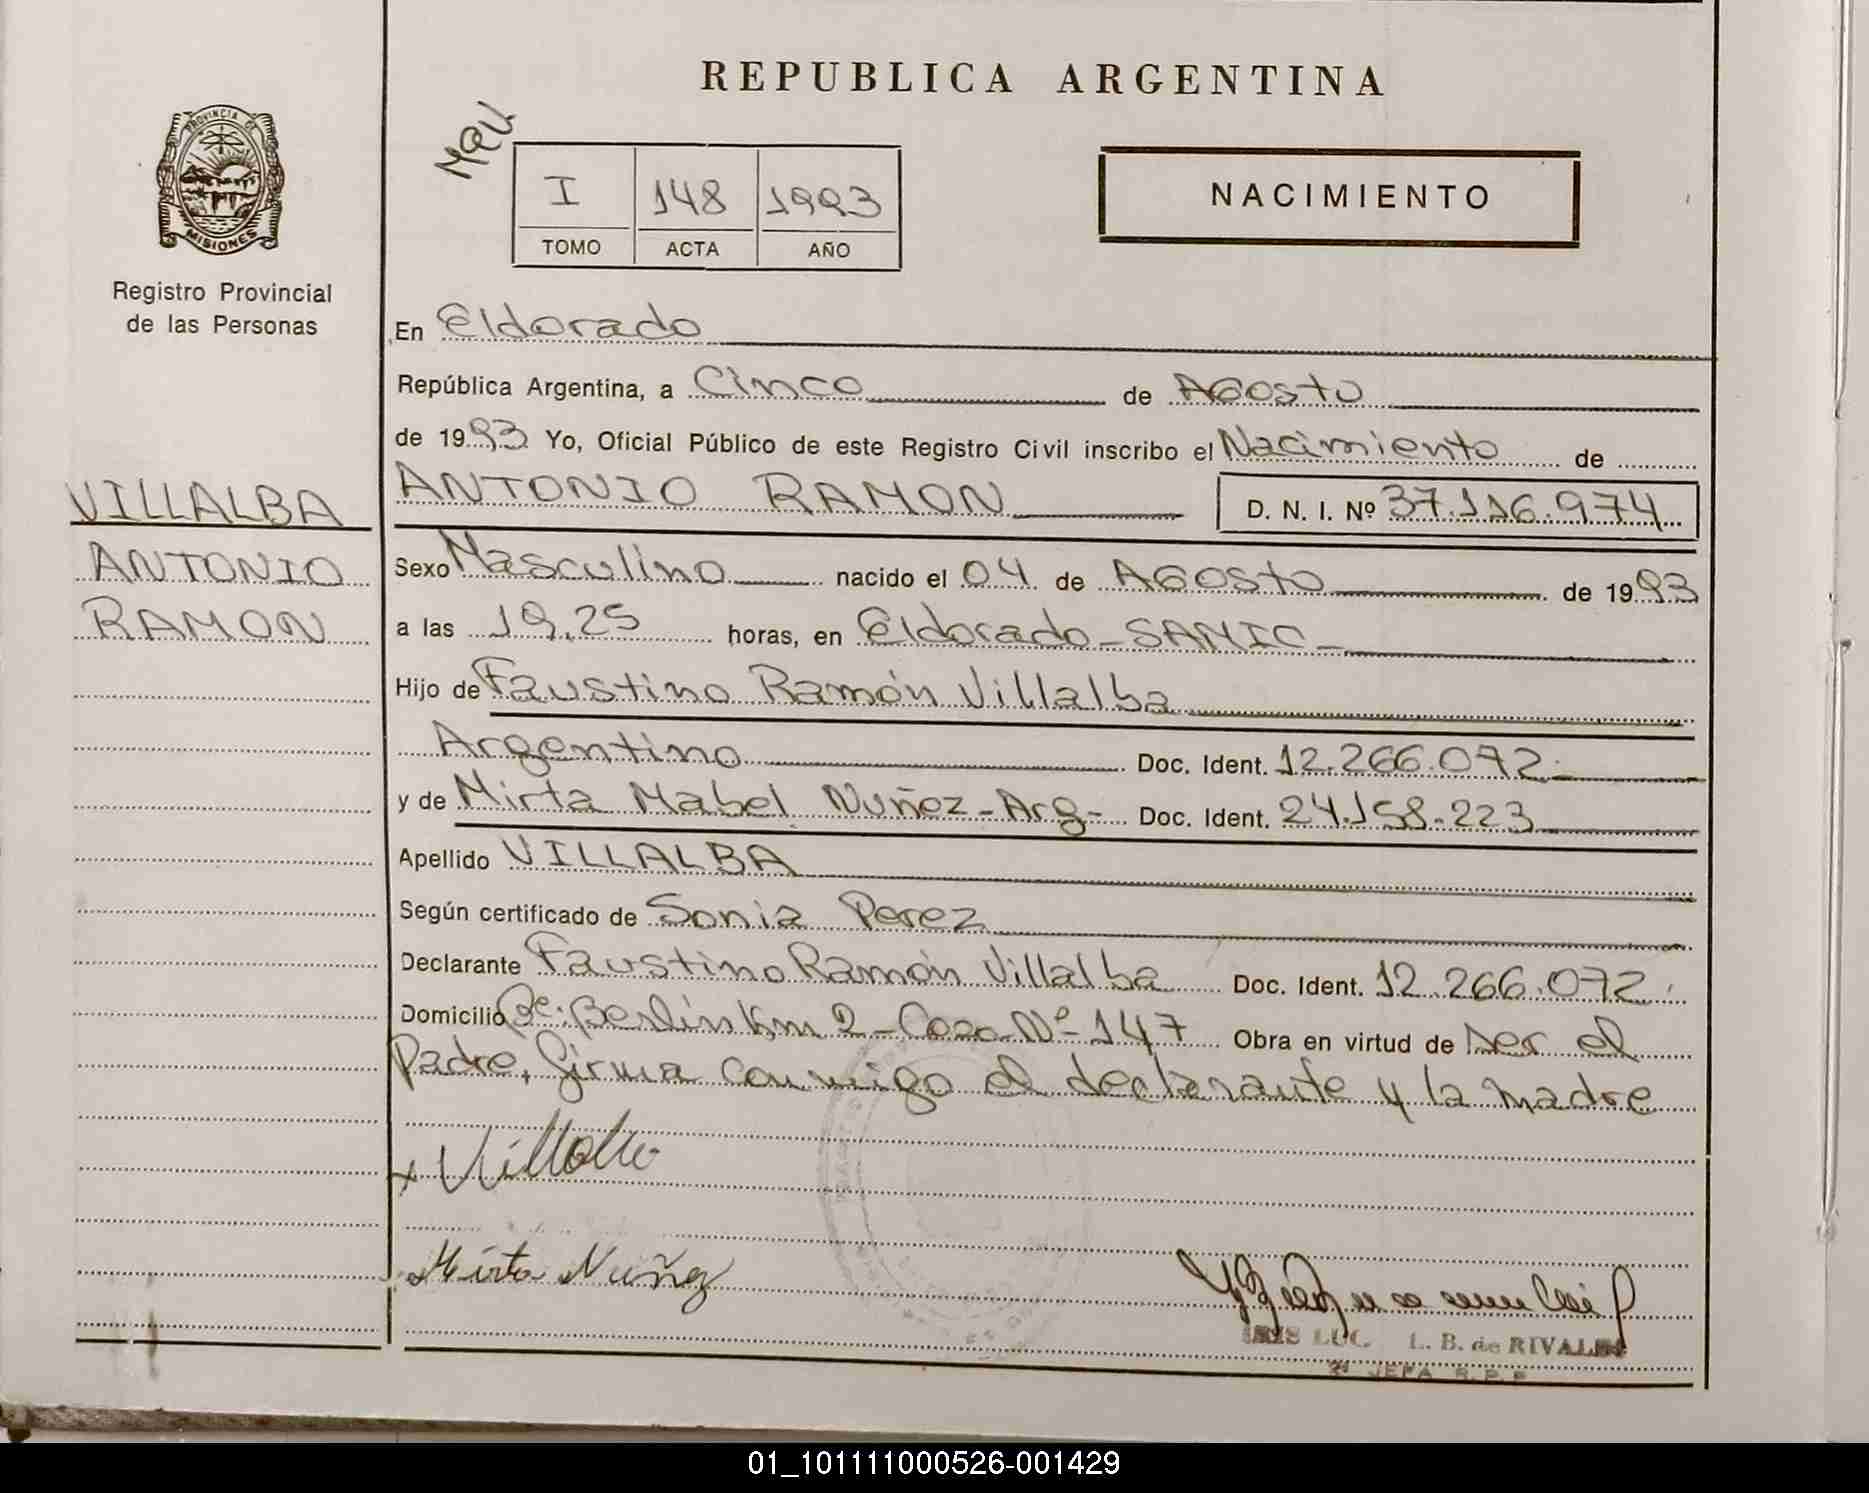 REPUBLICA ARGENTINA
PROVINCIA DE
MISIONES
Registro Provincial
de las Personas
I 148 1993
TOMO ACTA AÑO
NACIMIENTO
En Eldorado
República Argentina, a Cinco de Agosto
de 1993 Yo, Oficial Público de este Registro Civil inscribo el Nacimiento de
VILLALBA
ANTONIO
RAMON
ANTONIO RAMON D. N. I. Nº 37.116.974
Sexo Masculino nacido el 04 de Agosto de 1993
a las 19,25 horas, en Eldorado-SAMIC-
Hijo de Faustino Ramón Villalba
Argentino Doc. Ident. 12.266.072-
y de Mirta Mabel Nuñez-Arg- Doc. Ident. 24.158.223
Apellido VILLALBA
Según certificado de Sonia Perez
Declarante Faustino Ramón Villalba Doc. Ident. 12.266.072
Domicilio Berlin Km 2-Casa Nº 147 Obra en virtud de ser el
Padre, firma conmigo el declarante y la madre
x Villalba
Mirta Nuñez
L. B. de RIVALDI
JEFA R.P.P
01_101111000526-001429